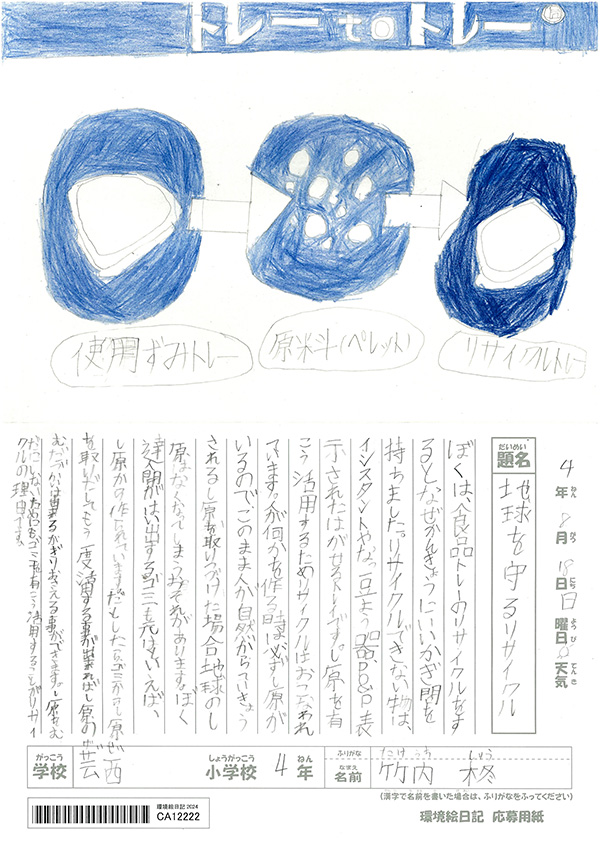 トレーtoトレー
使用ずみトレー
原料(ペレット)
リサイクルトレー
4年8月18日日曜日 天気
ねん がつ にち ようび てんき
だいめい
題名 地球を守るリサイクル
ぼくは、食品トレーのリサイクルをす
るとなぜかんきょうにいいかぎ問を
持ちました。リサイクルできない物は、
インスタントやなっ豆よう器、PSPP表
示されたはがせるトレーです。し原を有
こう活用するためリサイクルはおこなわれ
ています。人が何かを作る時は必ずし原が
いるのでこのまま人が自然からていきょう
されるし原を取りつづけた場合地球のし
原はなくなてしまうおそれがあります。ぼく
達人間がはい出するゴミも元はといえば、
し原から作られています。だとしたらゴミからし原
を取りだしてもう一度活用する事が出来ればし原の
むだづかいは出来るかぎりおさえる事ができます。し原をむ
だにしないためにも、ゴミを有こう活用することがリサイ
クルの理由です。
がっこう しょうがっこう ねん ふりがな たけ うち しゅう
学校 芸西 小学校 4年 なまえ 名前 竹内 柊
(漢字で名前を書いた場合は、ふりがなをふってください)
環境絵日記 2024
CA12222
環境絵日記 応募用紙